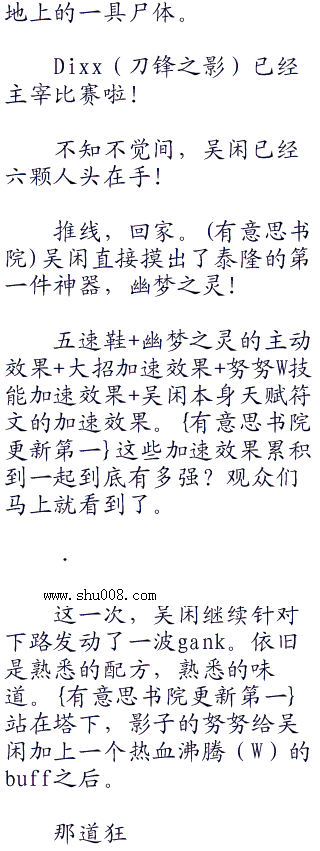 地上的一具尸体。
Dixx（刀锋之影）已经
主宰比赛啦！
不知不觉间，吴闲已经
六颗人头在手！
推线，回家。(有意思书
院)吴闲直接摸出了泰隆的第
一件神器，幽梦之灵！
五速鞋+幽梦之灵的主动
效果+大招加速效果+努努W技
能加速效果+吴闲本身天赋符
文的加速效果。{有意思书院
更新第一}这些加速效果累积
到一起到底有多强？观众们
马上就看到了。
.
www.shu008.com
这一次，吴闲继续针对
下路发动了一波gank。依旧
是熟悉的配方，熟悉的味
道。{有意思书院更新第一}
站在塔下，影子的努努给吴
闲加上一个热血沸腾（W）的
buff之后。
那道狂